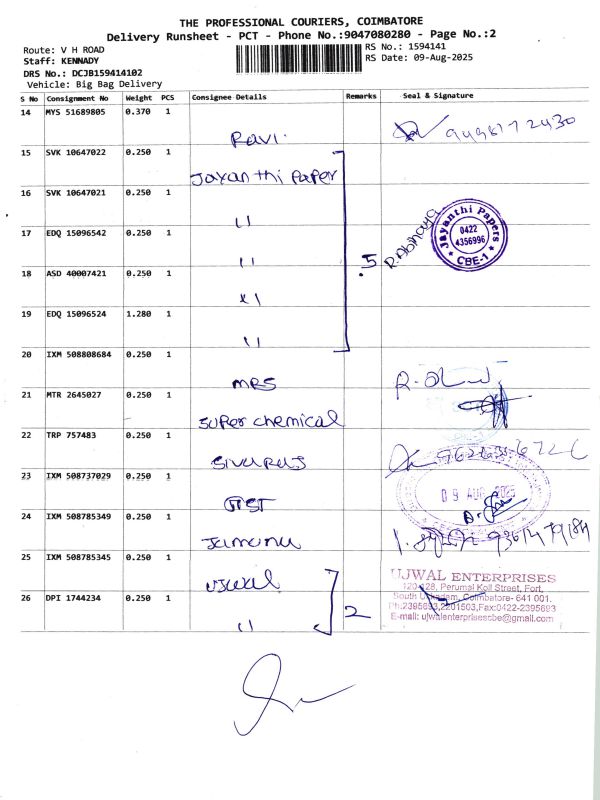 THE PROFESSIONAL COURIERS, COIMBATORE
Delivery Runsheet - PCT - Phone No.:9047080280 - Page No.:2
Route: V H ROAD
RS No.: 1594141
Staff: KENNADY
RS Date: 09-Aug-2025
DRS No.: DCJB159414102
Vehicle: Big Bag Delivery
S No Consignment No Weight PCS Consignee Details Remarks Seal & Signature
14 MYS 51689805 0.370 1
Ravi.
15 SVK 10647022 0.250 1
Jayanthi Paper
16 SVK 10647021 0.250 1
11
17 EDQ 15096542 0.250 1
11
5
R. Abinaya
Jayanthi Papers
0422
4356996
* CBE-1 *
18 ASD 40007421 0.250 1
11
19 EDQ 15096524 1.280 1
11
20 IXM 508808684 0.250 1
MRS
21 MTR 2645027 0.250 1
Super chemical
22 TRP 757483 0.250 1
Sivaraj
23 IXM 508737029 0.250 1
09 AUG 2025
24 IXM 508785349 0.250 1
Jamuna
25 IXM 508785345 0.250 1
ujwal
26 DPI 1744234 0.250 1
11
2
UJWAL ENTERPRISES
120-128, Perumal Koil Street, Fort,
South Ukkadam, Coimbatore- 641 001.
Ph:2395693,2201503,Fax:0422-2395693
E-mail: ujwalenterprisescbe@gmail.com